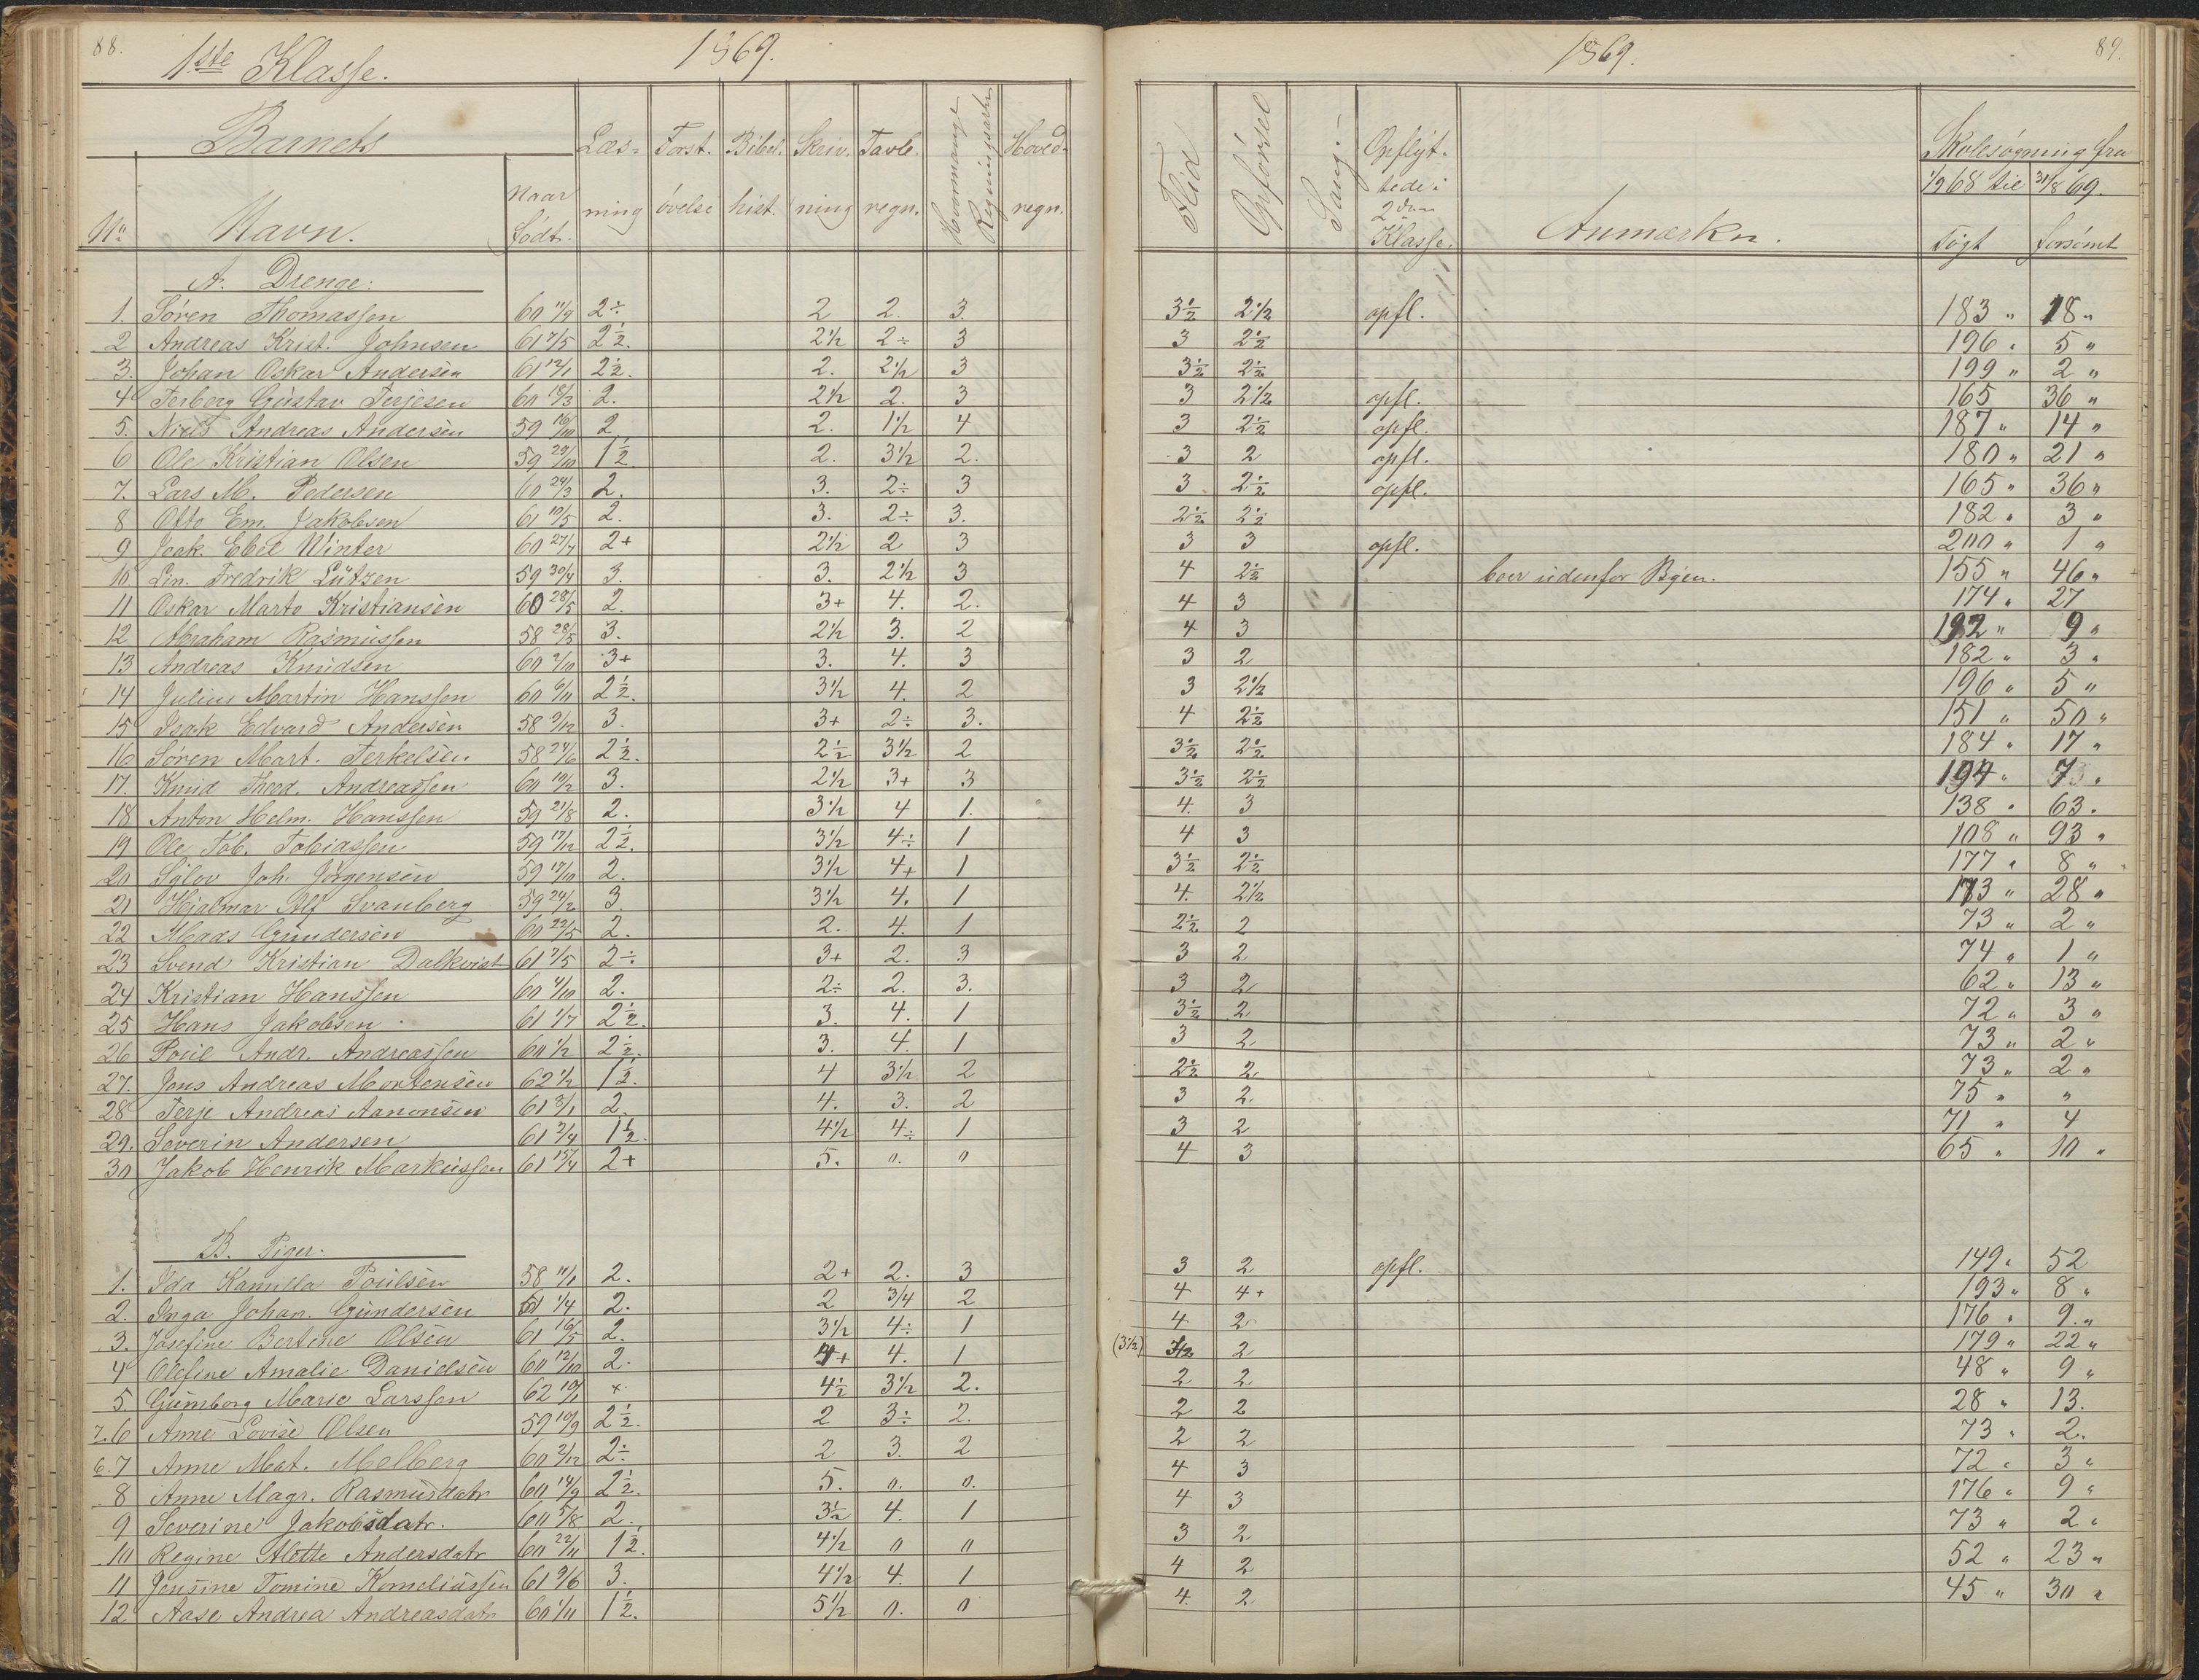 88.
1ste Klasse. 1869.
Barnets
No Navn. Naar født. Læs-ning Forst. øvelse Bibel. hist. Skriv. ning Tavle. regn. Hvormange Regningsarter Hoved-regn.
A. Drenge:
1. Søren Thomassen 60 11/9 2÷ 2 2. 3.
2 Andreas Krist. Johnsen 61 17/5 2½. 2½ 2÷ 3
3. Johan Oskar Andersen 61 12/1 2½. 2. 2½ 3
4 Terberg Gustav Terjesen 60 18/3 2. 2½ 2. 3
5. Niels Andreas Andersen 59 16/10 2 2. 1½ 4
6 Ole Kristian Olsen 59 29/10 1½. 2. 3½ 2.
7. Lars M. Pedersen 60 24/3 2. 3. 2÷ 3
8 Otto Em. Jakobsen 61 10/5 2. 3. 2÷ 3.
9 Joak. Ebel Winter 60 27/7 2+ 2½ 2 3
10 Lin. Fredrik Lützen 59 30/4 3. 3. 2½ 3
11 Oskar Marto Kristiansen 60 28/5 2. 3+ 4. 2.
12 Abraham Rasmussen 58 28/5 3. 2½ 3. 2
13 Andreas Knudsen 60 2/10 3+ 3. 4. 3
14 Julius Martin Hanssen 60 6/11 2½. 3½ 4. 2
15 Isak Edvard Andersen 58 9/12 3. 3+ 2÷ 3.
16 Søren Mart. Terkelsen 58 24/6 2½. 2½ 3½ 2
17. Knud Theod. Andreassen 60 10/2 3. 2½ 3+ 3
18 Anton Helm. Hanssen 59 21/8 2. 3½ 4 1.
19 Ole Tob. Tobiassen 59 17/12 2½. 3½ 4÷ 1
20 Sølov Joh. Jørgensen 59 17/10 2. 3½ 4+ 1
21 Hjalmar Alf Svanberg 59 24/2 3. 3½ 4. 1
22 Mads Gundersen 60 23/5 2. 2. 4. 1
23 Svend Kristian Dalkvist 61 7/5 2÷. 3+ 2. 3
24 Kristian Hanssen 60 4/10 2. 2÷ 2. 3.
25 Hans Jakobsen 61 1/7 2½. 3. 4. 1
26 Poul Andr. Andreassen 60 1/2 2½. 3. 4. 1
27. Jens Andreas Mortensen 62 1/2 1½. 4 3½ 2
28 Terje Andreas Aanonsen 61 3/1 2. 4. 3. 2
29. Severin Andersen 61 2/4 1½. 4½ 4÷ 1
30 Jakob Henrik Markussen 61 15/4 2+ 5. 0. 0
B. Piger:
1. Ida Kamilla Poulsen 58 11/1 2. 2+ 2. 3
2. Inga Johan. Gundersen 61 1/4 2. 2 3/4 2
3. Josefine Bertine Olsen 61 16/5 2. 3½ 4÷ 1
4 Olefine Amalie Danielsen 60 12/10 2. 4+ 4. 1
5 Gumborg Marie Larssen 62 10/1 + 4½ 3½ 2.
7.6 Anne Lovise Olsen 59 10/9 2½. 2 3÷ 2.
6.7 Anne Mat. Melberg 60 2/12 2÷ 2 3. 2
8 Anne Magr. Rasmusdatr 60 14/9 2½. 5. 0. 0.
9 Severine Jakobsdatr. 60 5/8 2. 3½ 4. 1
10 Regine Alette Andersdatr 60 22/11 1½. 4½ 0 0
11 Jensine Tomine Korneliussen 61 9/6 3. 4½ 4. 1
12 Aase Andrea Andreasdatr 60 1/11 1½. 5½ 0. 0
1869. 89.
Flid Opførsel Sang. Opflyt-tede i 2den Klasse. Anmærkn. Skolesøgning fra 1/9 68 til 31/8 69. søgt forsømt
3½ 2½ opfl. 183 " 18 "
3 2½ 196 " 5 "
3½ 2½ 199 " 2 "
3 2½ opfl. 165 36 "
3 2½ opfl. 187 " 14 "
3 2 opfl. 180 " 21 "
3 2½ opfl. 165 " 36 "
2½ 2½ 182 " 3 "
3 3 opfl. 200 " 1 "
4 2½ boer udenfor Byen. 155 " 46 "
4 3 174 " 27
4 3 192 " 9 "
3 2 182 " 3 "
3 2½ 196 " 5 "
4 2½ 151 " 50 "
3½ 2½ 184 " 17 "
3½ 2½ 194 " 7 "
4. 3 138 " 63.
4 3 108 " 93 "
3½ 2½ 177 " 8 "
4. 2½ 173 " 28 "
2½ 2 73 " 2 "
3 2 74 " 1 "
3 2 62 " 13 "
3½ 2 72 " 3 "
3 2 73 " 2 "
2½ 2 73 " 2 "
3 2 75 " "
3 2 71 " 4
4 3 65 " 10 "
3 2 opfl. 149 " 52
4 4+ 193 " 8 "
4 2 176 " 9. "
(3½) 3½ 2 179 " 22 "
2 2 48 " 9 "
2 2 28 " 13.
2 2 73 " 2.
4 3 72 " 3 "
4 3 176 " 9 "
3 2 73 " 2 "
4 2 52 " 23 "
4. 2 45 " 30 "